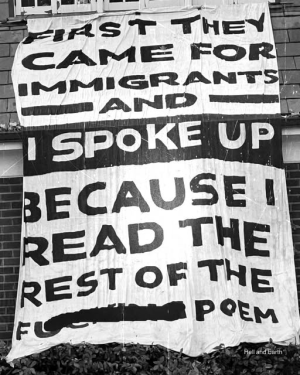 FIRST THEY
CAME FOR
IMMIGRANTS
— AND —
I SPOKE UP
BECAUSE I
READ THE
REST OF THE
POEM
Hell and Earth